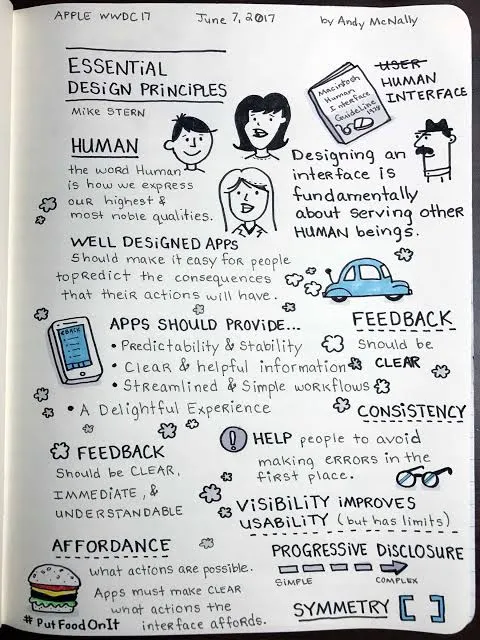 APPLE WWDC 17 June 7, 2017 by Andy McNally
ESSENTIAL
DESIGN PRINCIPLES
Mike STERN
Macintosh
Human
Interface
GuideLine
USER
HUMAN
INTERFACE
HUMAN
the word Human
is how we express
our highest &
most noble qualities.
Designing an
interface is
fundamentally
about serving other
HUMAN beings.
WELL DESIGNED APPS
Should make it easy for people
to predict the consequences
that their actions will have.
BACK
APPS SHOULD PROVIDE...
• Predictability & Stability
• Clear & helpful information
• Streamlined & Simple workflows
• A Delightful Experience
FEEDBACK
Should be
CLEAR
CONSISTENCY
FEEDBACK
Should be CLEAR,
IMMEDIATE, &
UNDERSTANDABLE
! HELP people to avoid
making ERRORS in the
first place.
VISIBILITY IMPROVES
USABILITY (but has limits)
AFFORDANCE
what actions are possible.
Apps must make CLEAR
what actions the
interface affords.
#PutFoodOnIt
PROGRESSIVE DISCLOSURE
SIMPLE COMPLEX
SYMMETRY [ ]